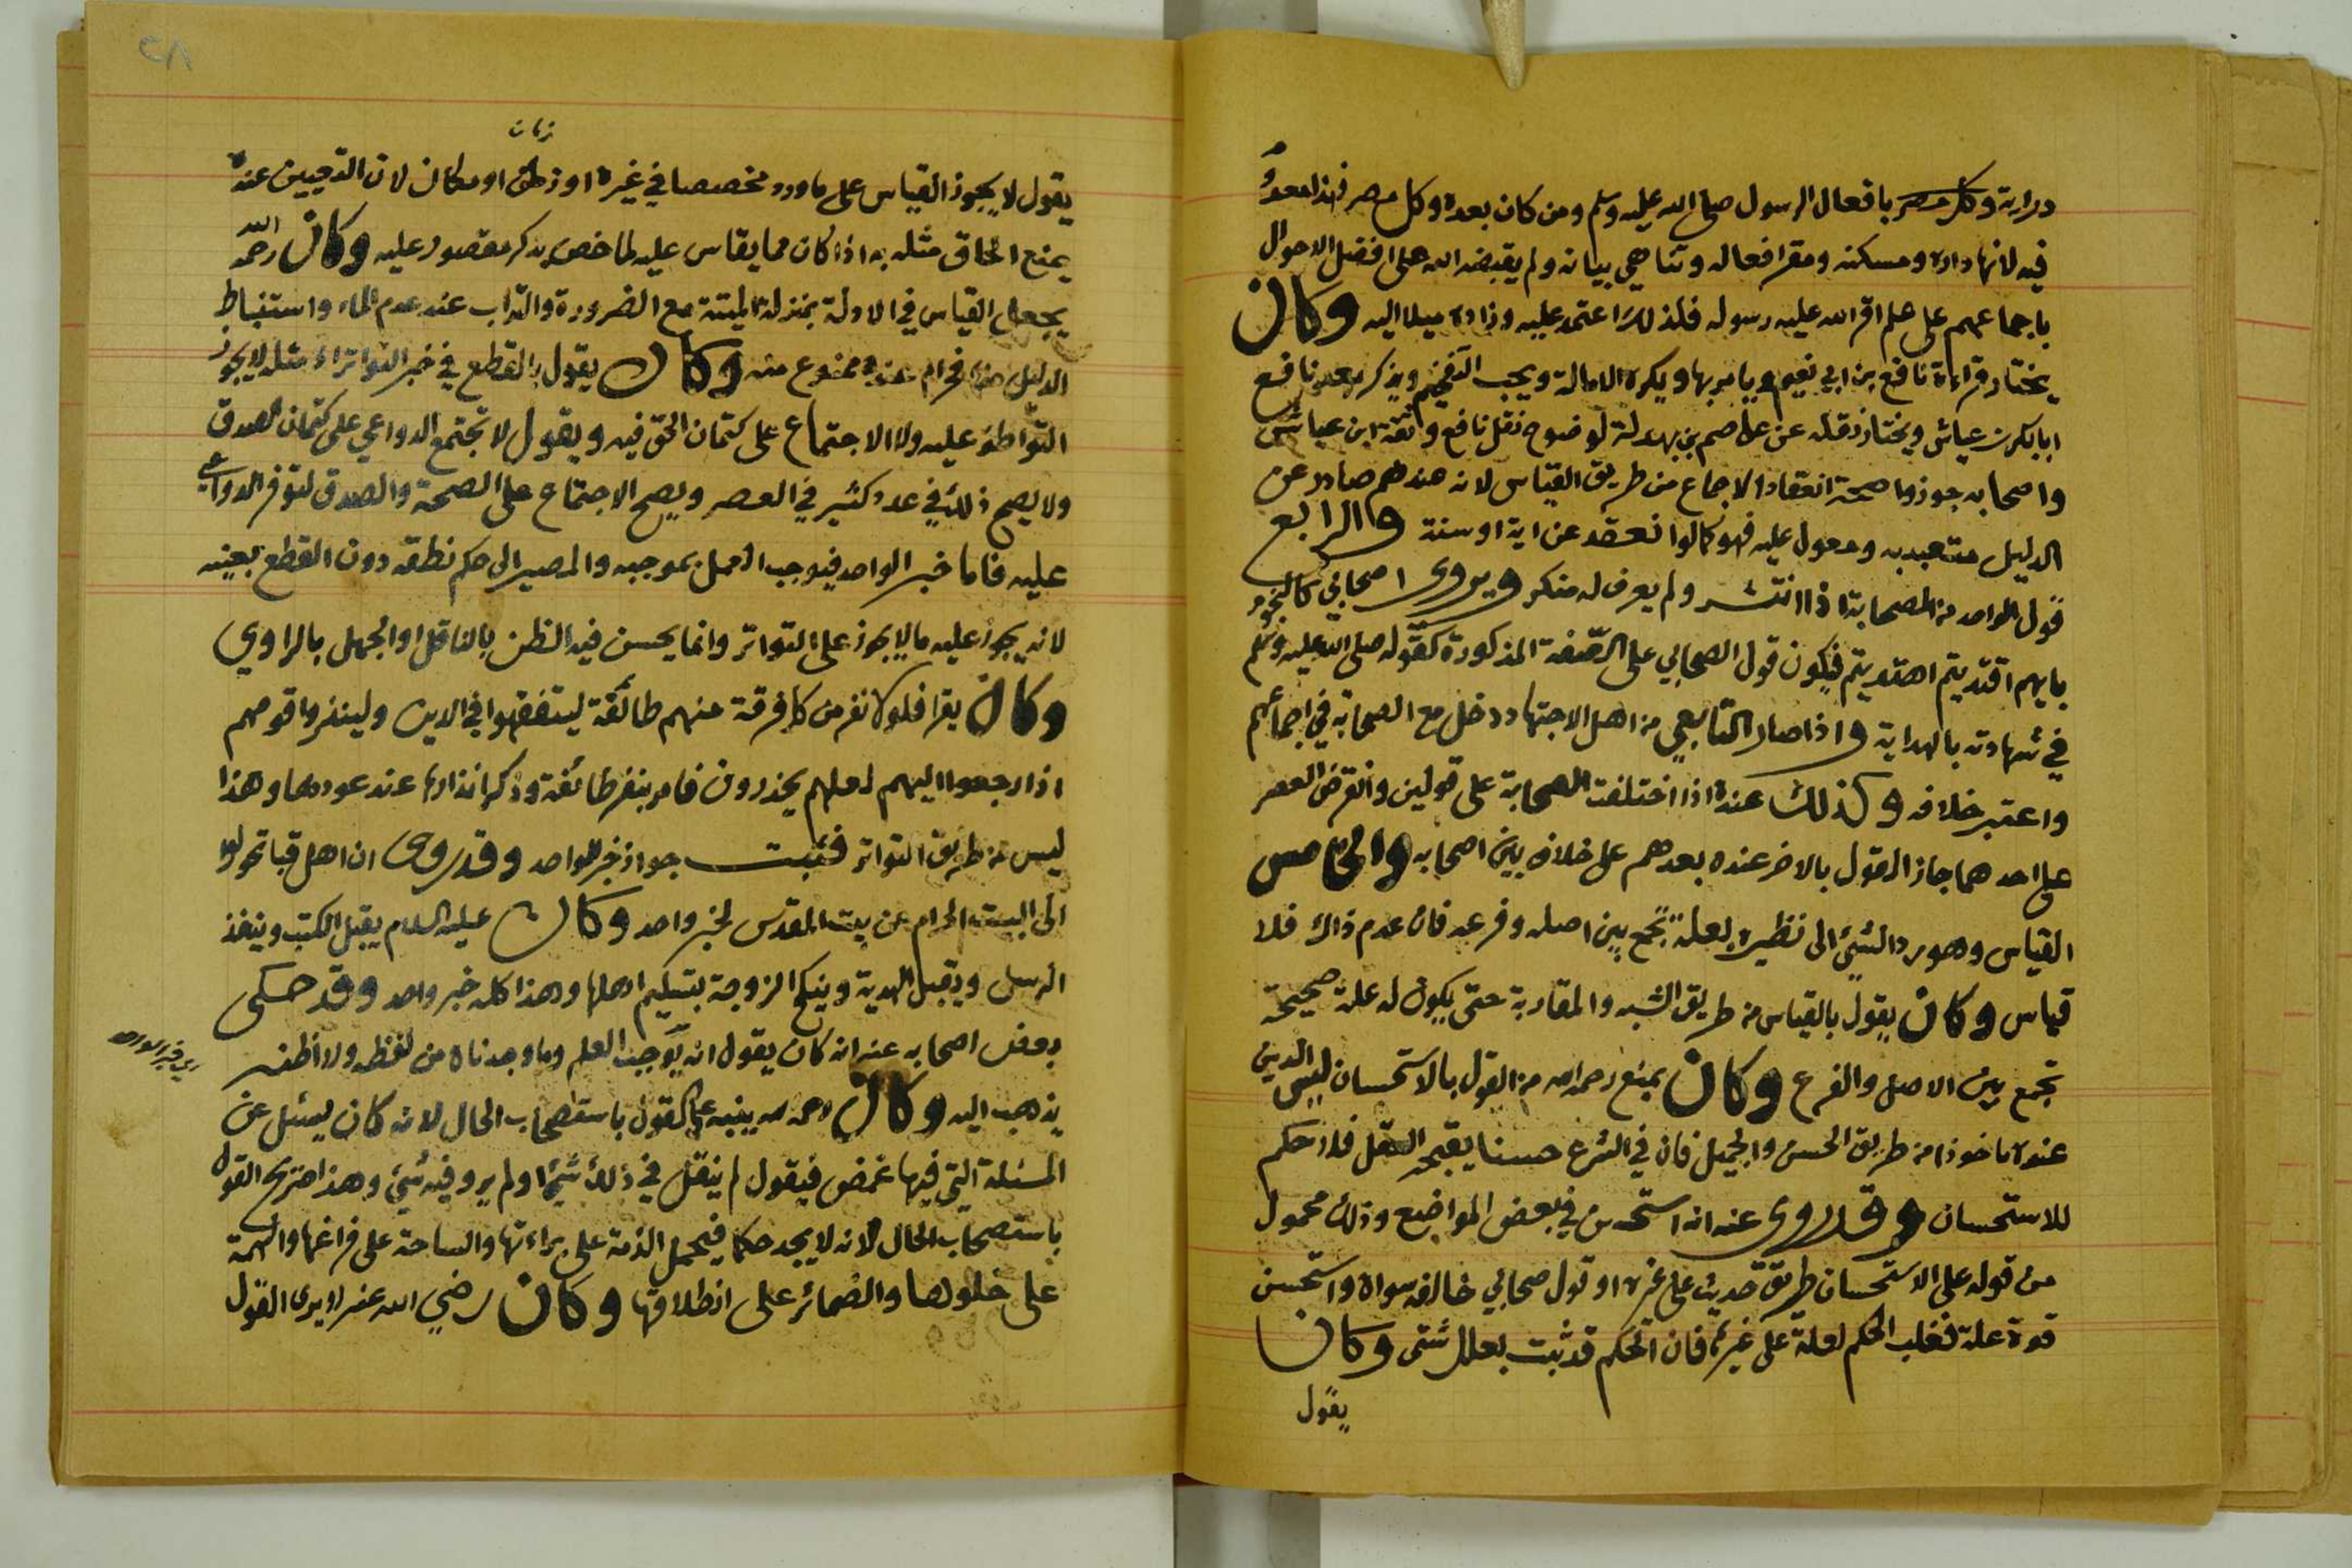 دراية وكل مصر بافعال الرسول صلى الله عليه وسلم ومن كان بعده وكل مصر فهذا معدوم
فيه لانها داره ومسكنه ومقر افعاله وتناهي بيانه ولم يقبضه الله على افضل الاحوال
باجماعهم على علم اقر الله عليه رسوله فلذلك اعتمد عليه وزاده ميلا اليه وكان
يختار قراءة نافع بن ابي نعيم ويامر بها ويكره الامالة ويحب التفخيم ويذكر بعد نافع
ابا بكر بن عياش ويختار نقله عن عاصم بن بهدلة لوضوح نقل نافع وثقة ابن عياش
واصحابه جوزوا صحة انعقاد الاجماع من طريق القياس لانه عندهم صادر عن
الدليل متعبد به ومعول عليه فهو كما لو انعقد عن اية او سنة والرابع
قول الواحد من الصحابة اذا انتشر ولم يعرف له منكر ويروى اصحابي كالنجوم
بايهم اقتديتم اهتديتم فيكون قول الصحابي على الصفة المذكورة كقوله صلى الله عليه وسلم
في شهادته بالهداية واذا صار التابعي من اهل الاجتهاد دخل مع الصحابة في اجماعهم
واعتبر خلافه وكذلك عنده اذا اختلفت الصحابة على قولين وانقرض العصر
على احدهما جاز القول بالاخر عنده بعدهم على خلاف بين اصحابه والخامس
القياس وهو رد الشيئ الى نظيره لعلة تجمع بين اصله وفرعه فان عدم ذاك فلا
قياس وكان يقول بالقياس من طريق الشبه والمقاربة حتى يكون له علة صحيحة
تجمع بين الاصل والفرع وكان يمنع رحمه الله من القول بالاستحسان ليس الدين
عنده ماخوذا من طريق الحسن والجميل فان في الشرع حسنا يقبحه العقل فلا حكم
للاستحسان وقد روى عنه انه استحسن في بعض المواضع وذلك محمول
من قوله على الاستحسان طريق حديث على غيره او قول صحابي خالفه سواه واستحسن
قوة علة فغلب الحكم لعلة على غيرها فان الحكم قد ثبت بعلل شتى وكان
يقول
زمان
يقول لا يجوز القياس على ما ورد مخصصا في غيره او زمن او مكان لان التعيين عنده
يمنع الحاق مثله به اذا كان مما يقاس عليه لما خص بذكر مقصور عليه وكان رحمه الله
يجعل القياس في الادلة بمنزلة الميتة مع الضرورة والتراب عند عدم الماء واستنباط
الدليل منه فحرام عنده ممنوع منه وكان يقول بالقطع في خبر التواتر اذ مثله لا يجوز
التواطؤ عليه ولا الاجتماع على كتمان الحق فيه ويقول لا تجتمع الدواعي على كتمان الصدق
ولا يصح ذلك في عدد كثير في العصر ويصح الاجتماع على الصحة والصدق لتوفر الدواعي
عليه فاما خبر الواحد فيوجب العمل بموجبه والمصير الى حكم نطقه دون القطع بعينه
لانه يجوز عليه ما لا يجوز على التواتر وانما يحسن فيه الظن بالناقل او الجهل بالراوي
وكان يقرا فلولا نفر من كل فرقة منهم طائفة ليتفقهوا في الدين ولينذروا قومهم
اذا رجعوا اليهم لعلهم يحذرون فامر بنفر طائفة وذكر انذارها عند عودها وهذا
ليس من طريق التواتر فثبت جواز خبر الواحد وقد روى ان اهل قبا تحولوا
الى البيت الحرام عن بيت المقدس لخبر واحد وكان عليه السلام يقبل الكتب وينفذ
الرسل ويقبل الهدية وينكح الزوجة بتسليم اهلها وهذا كله خبر واحد وقد حكى
بعض اصحابه عنه انه كان يقول انه يوجب العلم وما وجدناه من لفظه ولا اظنه
اي خبر الواحد
يذهب اليه وكان رحمه الله ينبه على القول باستصحاب الحال لانه كان يسئل عن
المسئلة التي فيها غمض فيقول لم ينقل في ذلك شيئا ولم يرو فيه شيئ وهذا صريح القول
باستصحاب الحال لانه لا يجد حكما فيحمل الذمة على براءتها والساحة على فراغها والهمة
على خلوها والضمائر على انطلاقها وكان رضي الله عنه لا يرى القول